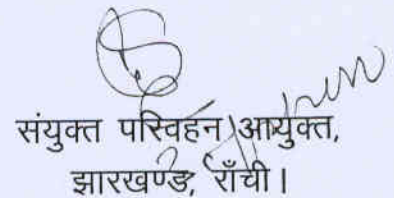 संयुक्त परिवहन आयुक्त,
झारखण्ड, राँची।